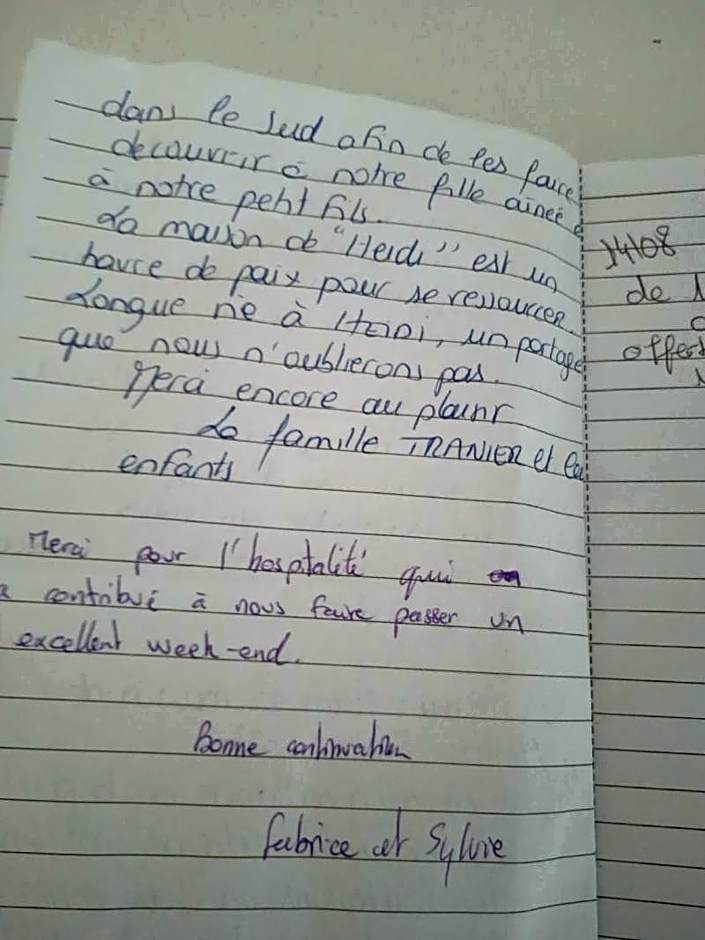 dans le sud afin de les faire
decouvrir à notre fille ainée
à notre petit fils.
La maison de "Heidi" est un
havre de paix pour se ressourcer.
Longue vie à Heidi, un partage
que nous n'oublierons pas.
Merci encore au plaisir
La famille TRANIER et les
enfants
Merci pour l'hospitalité qui
a contribué à nous faire passer un
excellent week-end.
Bonne continuation
Fabrice et Sylvie
14/08
de
offert